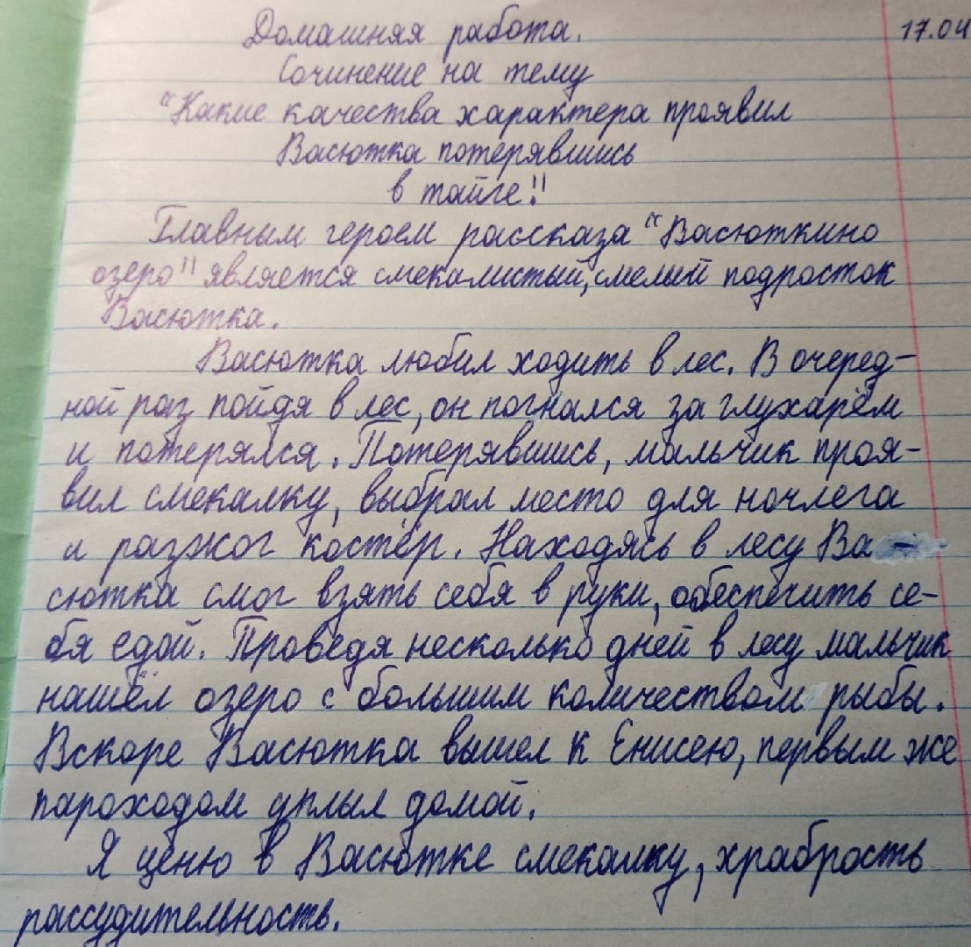 Домашняя работа. 17.04
Сочинение на тему
"Какие качества характера проявил
Васютка потерявшись
в тайге"
Главным героем рассказа "Васюткино
озеро" является смекалистый, смелый подросток
Васютка.
Васютка любил ходить в лес. В очеред-
ной раз пойдя в лес, он погнался за глухарём
и потерялся. Потерявшись, мальчик проя-
вил смекалку, выбрал место для ночлега
и разжог костёр. Находясь в лесу Ва-
сютка смог взять себя в руки, обеспечить се-
бя едой. Проведя несколько дней в лесу мальчик
нашёл озеро с большим количеством рыбы.
Вскоре Васютка вышел к Енисею, первым же
пароходом уплыл домой.
Я ценю в Васютке смекалку, храбрость
рассудительность.